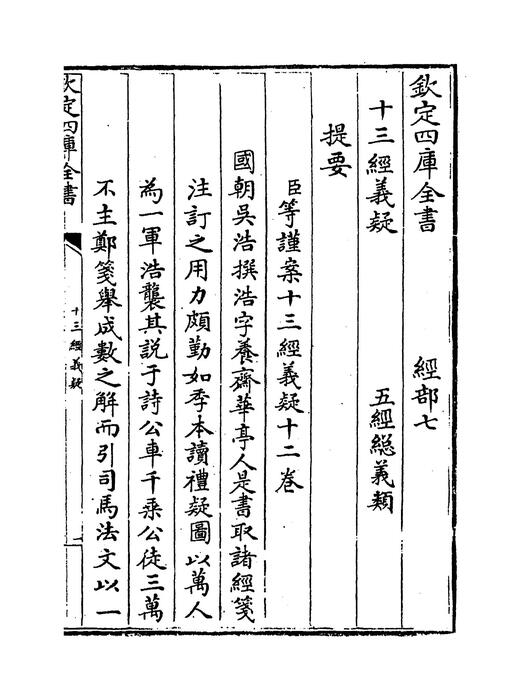 欽定四庫全書　經部七
十三經義疑　五經緫義類
提要
臣等謹案十三經義疑十二卷
國朝吳浩撰浩字養齋華亭人是書取諸經箋
注訂之用力頗勤如季本讀禮疑圖以萬人
為一軍浩襲其説于詩公車千乘公徒三萬
不主鄭箋舉成數之解而引司馬法文以一
欽定四庫全書
十三經義疑